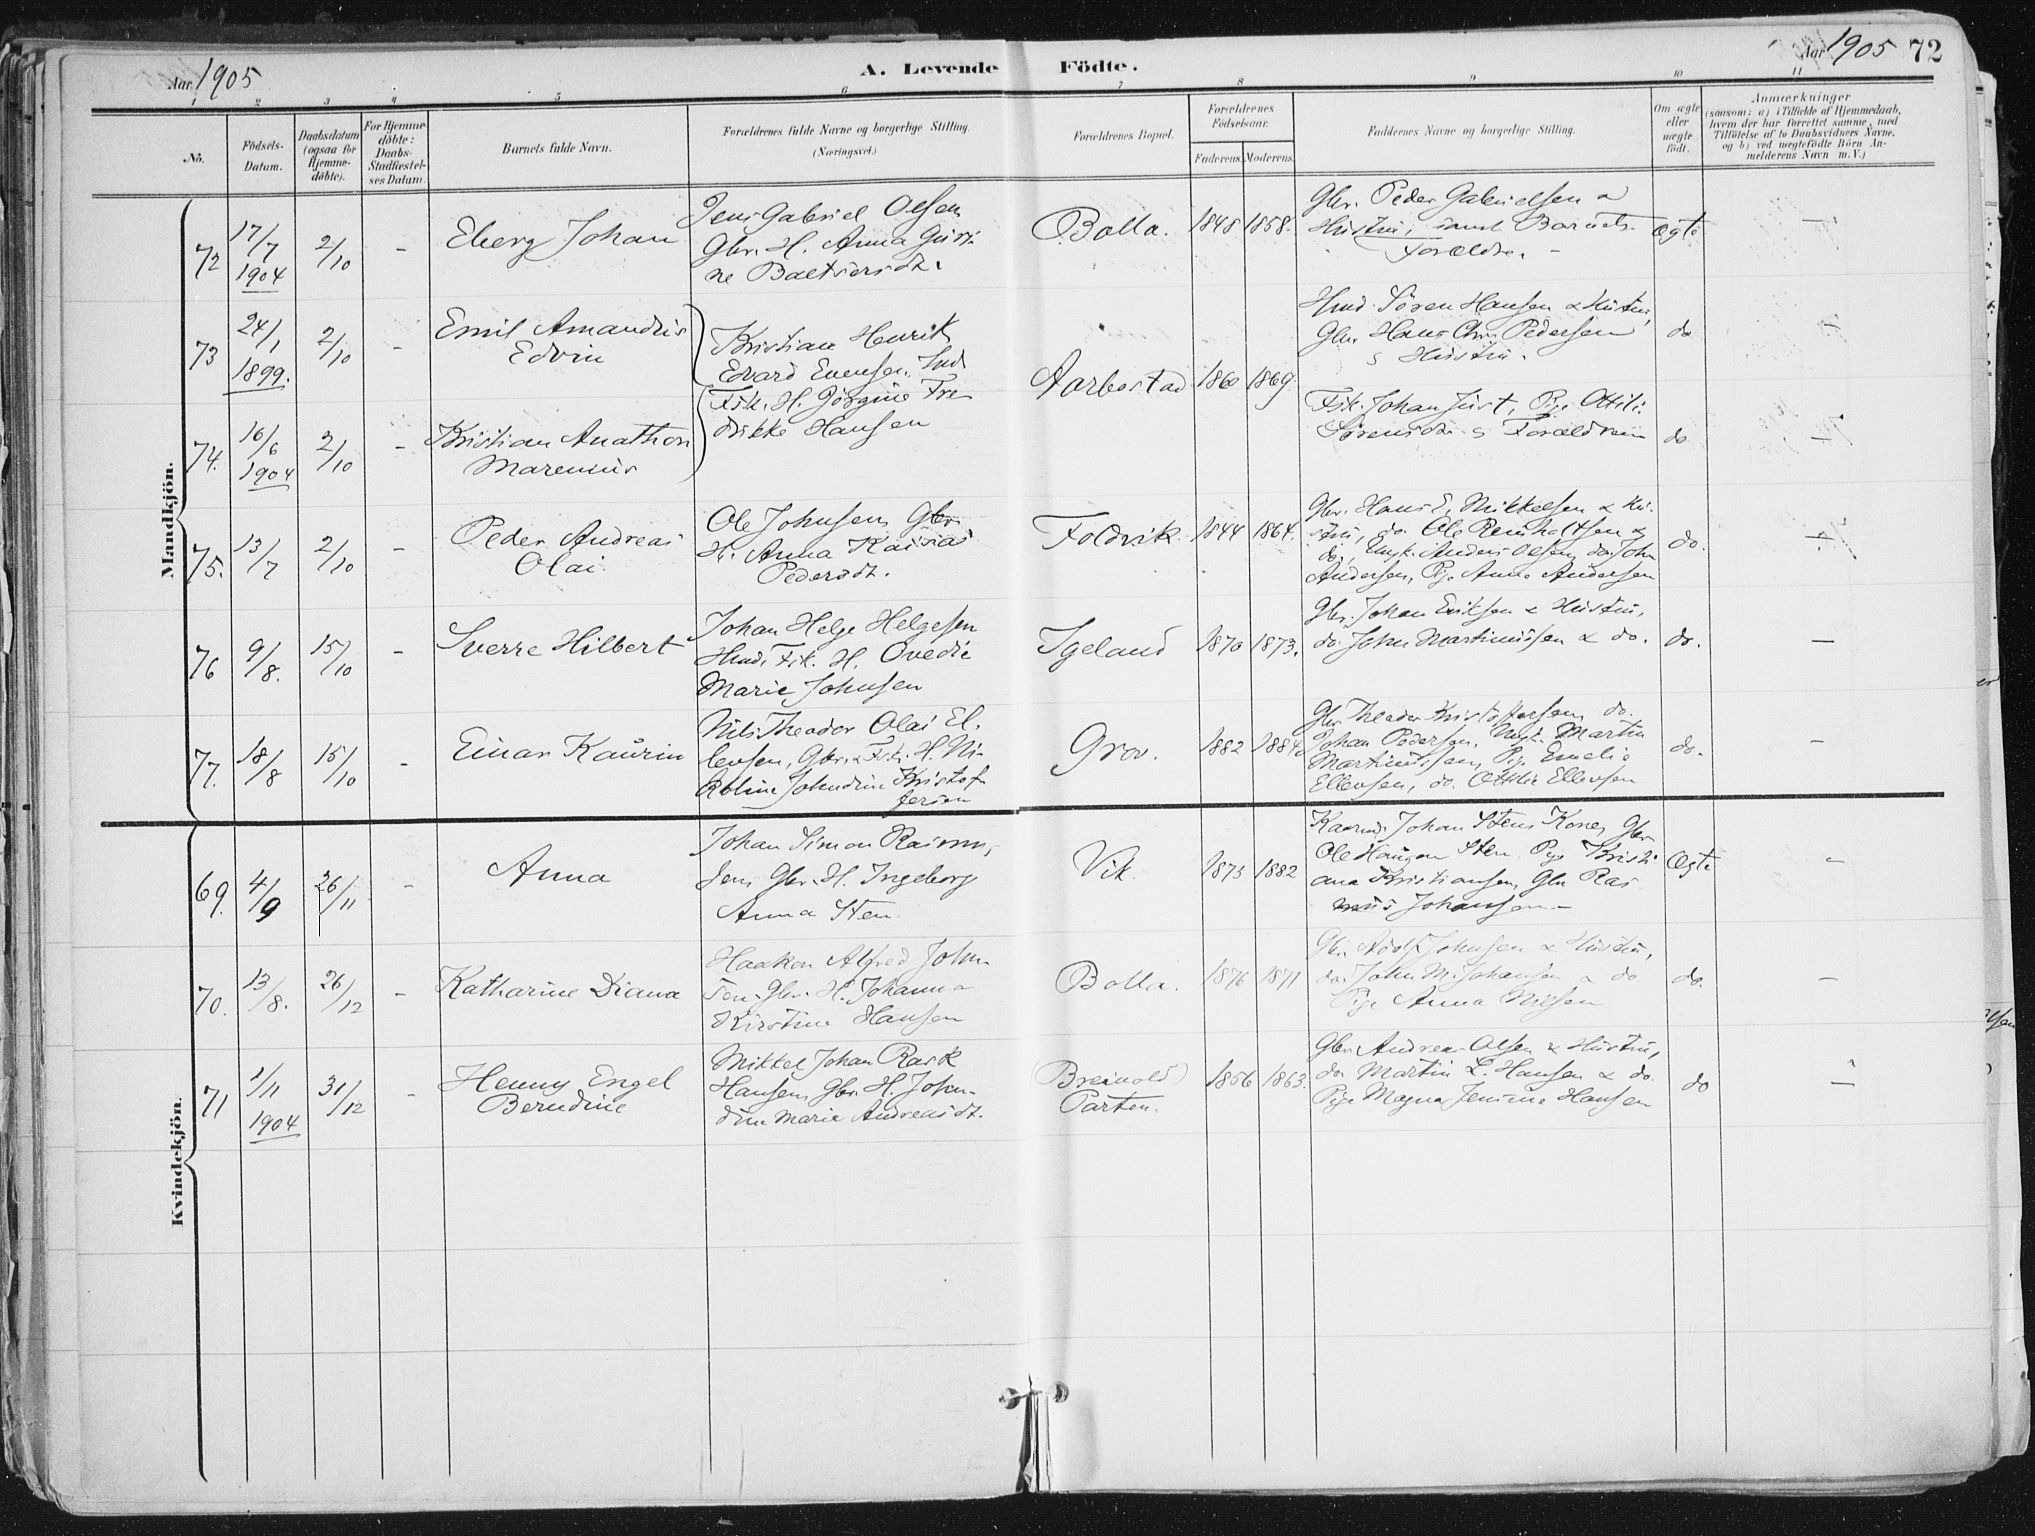 Aar 1905
A. Levende Födte.
Aar 1905
72
1 2 3 4 5 6 7 8 9 10 11
No.
Födsels-
Datum.
Daabsdatum
(ogsaa for
Hjemme-
döbte).
For Hjemme-
döbte:
Daabs-
Stadfæstel-
ses Datum.
Barnets fulde Navn.
Forældrenes fulde Navne og borgerlige Stilling.
(Næringsvei.)
Forældrenes Bopæl.
Forældrenes
Födselsaar.
Faderens.
Moderens.
Faddernes Navne og borgerlige Stilling.
Om ægte
eller
uægte
födt.
Anmærkninger
(saasom: a) i Tilfælde af Hjemmedaab,
hvem der har forrettet samme, med
Tilföielse af to Daabsvidners Navne,
og b) ved uægtefödte Börn An-
melderens Navn m. V.)
Mandkjön.
72
17/7
1904
2/10
-
Eberg Johan
Jens Gabriel Olsen
Gbr. H. Anna Gusti
ne Baltsersdt.
Bolla.
1848
1858.
Gbr. Peder Gabrielsen &
Hustru, samt Barnets
Forældre.
Ægte
-
73
24/1
1899.
2/10
-
Emil Amandus
Edvin
Kristian Henrik
Edvard Evensen. Ind
Fsk. H. Jørgine Fre
drikke Hansen
Aarbostad
1860
1869.
Hmd. Søren Hansen & Hustru,
Gbr. Hans Chr. Pedersen
& Hustru.
do
-
74.
16/6
1904
2/10
-
Kristian Anathon
Marenius
Fsk. Johan Just, Pige Ottili
Sørensdt. & Forældrene
do
-
75.
13/7
2/10
-
Peder Andreas
Olai
Ole Johnsen, Gbr.
H. Anna Kaisa
Pedersdt.
Foldvik.
1844
1864.
Gbr. Hans E. Mikkelsen & Hu-
stru, do. Ole Reinholtsen &
do, Ungk. Anders Olsen, do John
Andersen, Pige Anne Andersen
do.
-
76
9/8.
15/10
-
Sverre Hilbert
Johan Helge Helgesen
Hmd. Fsk. H. Ovedie
Marie Johnsen
Igeland
1870
1873.
Gbr. Johan Eriksen & Hustru,
do. John Martinussen & do.
do.
-
77.
18/8
15/10
-
Einar Kaurin
Nils Theodor Olai El-
levsen, Gbr. & Fsk. H. Ni-
koline Johndine Kristof
fersen
Grov.
1882
1884
Gbr. Theodor Kristoffersen, do.
Johan Pedersen, Ungk. Martin
Martinussen, Pige Emelie
Ellevsen, do. Ottilie Ellevsen
do.
-
Kvindekjön.
69.
4/9
26/11
-
Anna
Johan Simon Rasmus-
sen Gbr. H. Ingeborg
Anna Sten
Vik.
1873
1882
Kaarmd. Johan Stens Kone, Gbr
Ole Haugen Sten, Pige Kristi
ana Kristiansen, Gbr Ras
mus Johansen
Ægte
-
70.
13/8.
26/12
-
Katharine Diana
Haakon Alfred John-
sen. Gbr. H. Johanna
Kirstine Hansen
Bolla.
1876
1871
Gbr. Adolf Johnsen & Hustru,
do. John M. Johansen & do
Pige Anna Nilsen
do.
-
71
1/11
1904
31/12
-
Henny Engel
Berndine
Mikkel Johan Rask
Hansen, Gbr. H. Johan-
dine Marie Andreasdt.
Breivold
Parten.
1856
1863.
Gbr. Andreas Olsen & Hustru,
do Martin L. Hansen & do.
Pige Magna Jensine Hansen
do
-